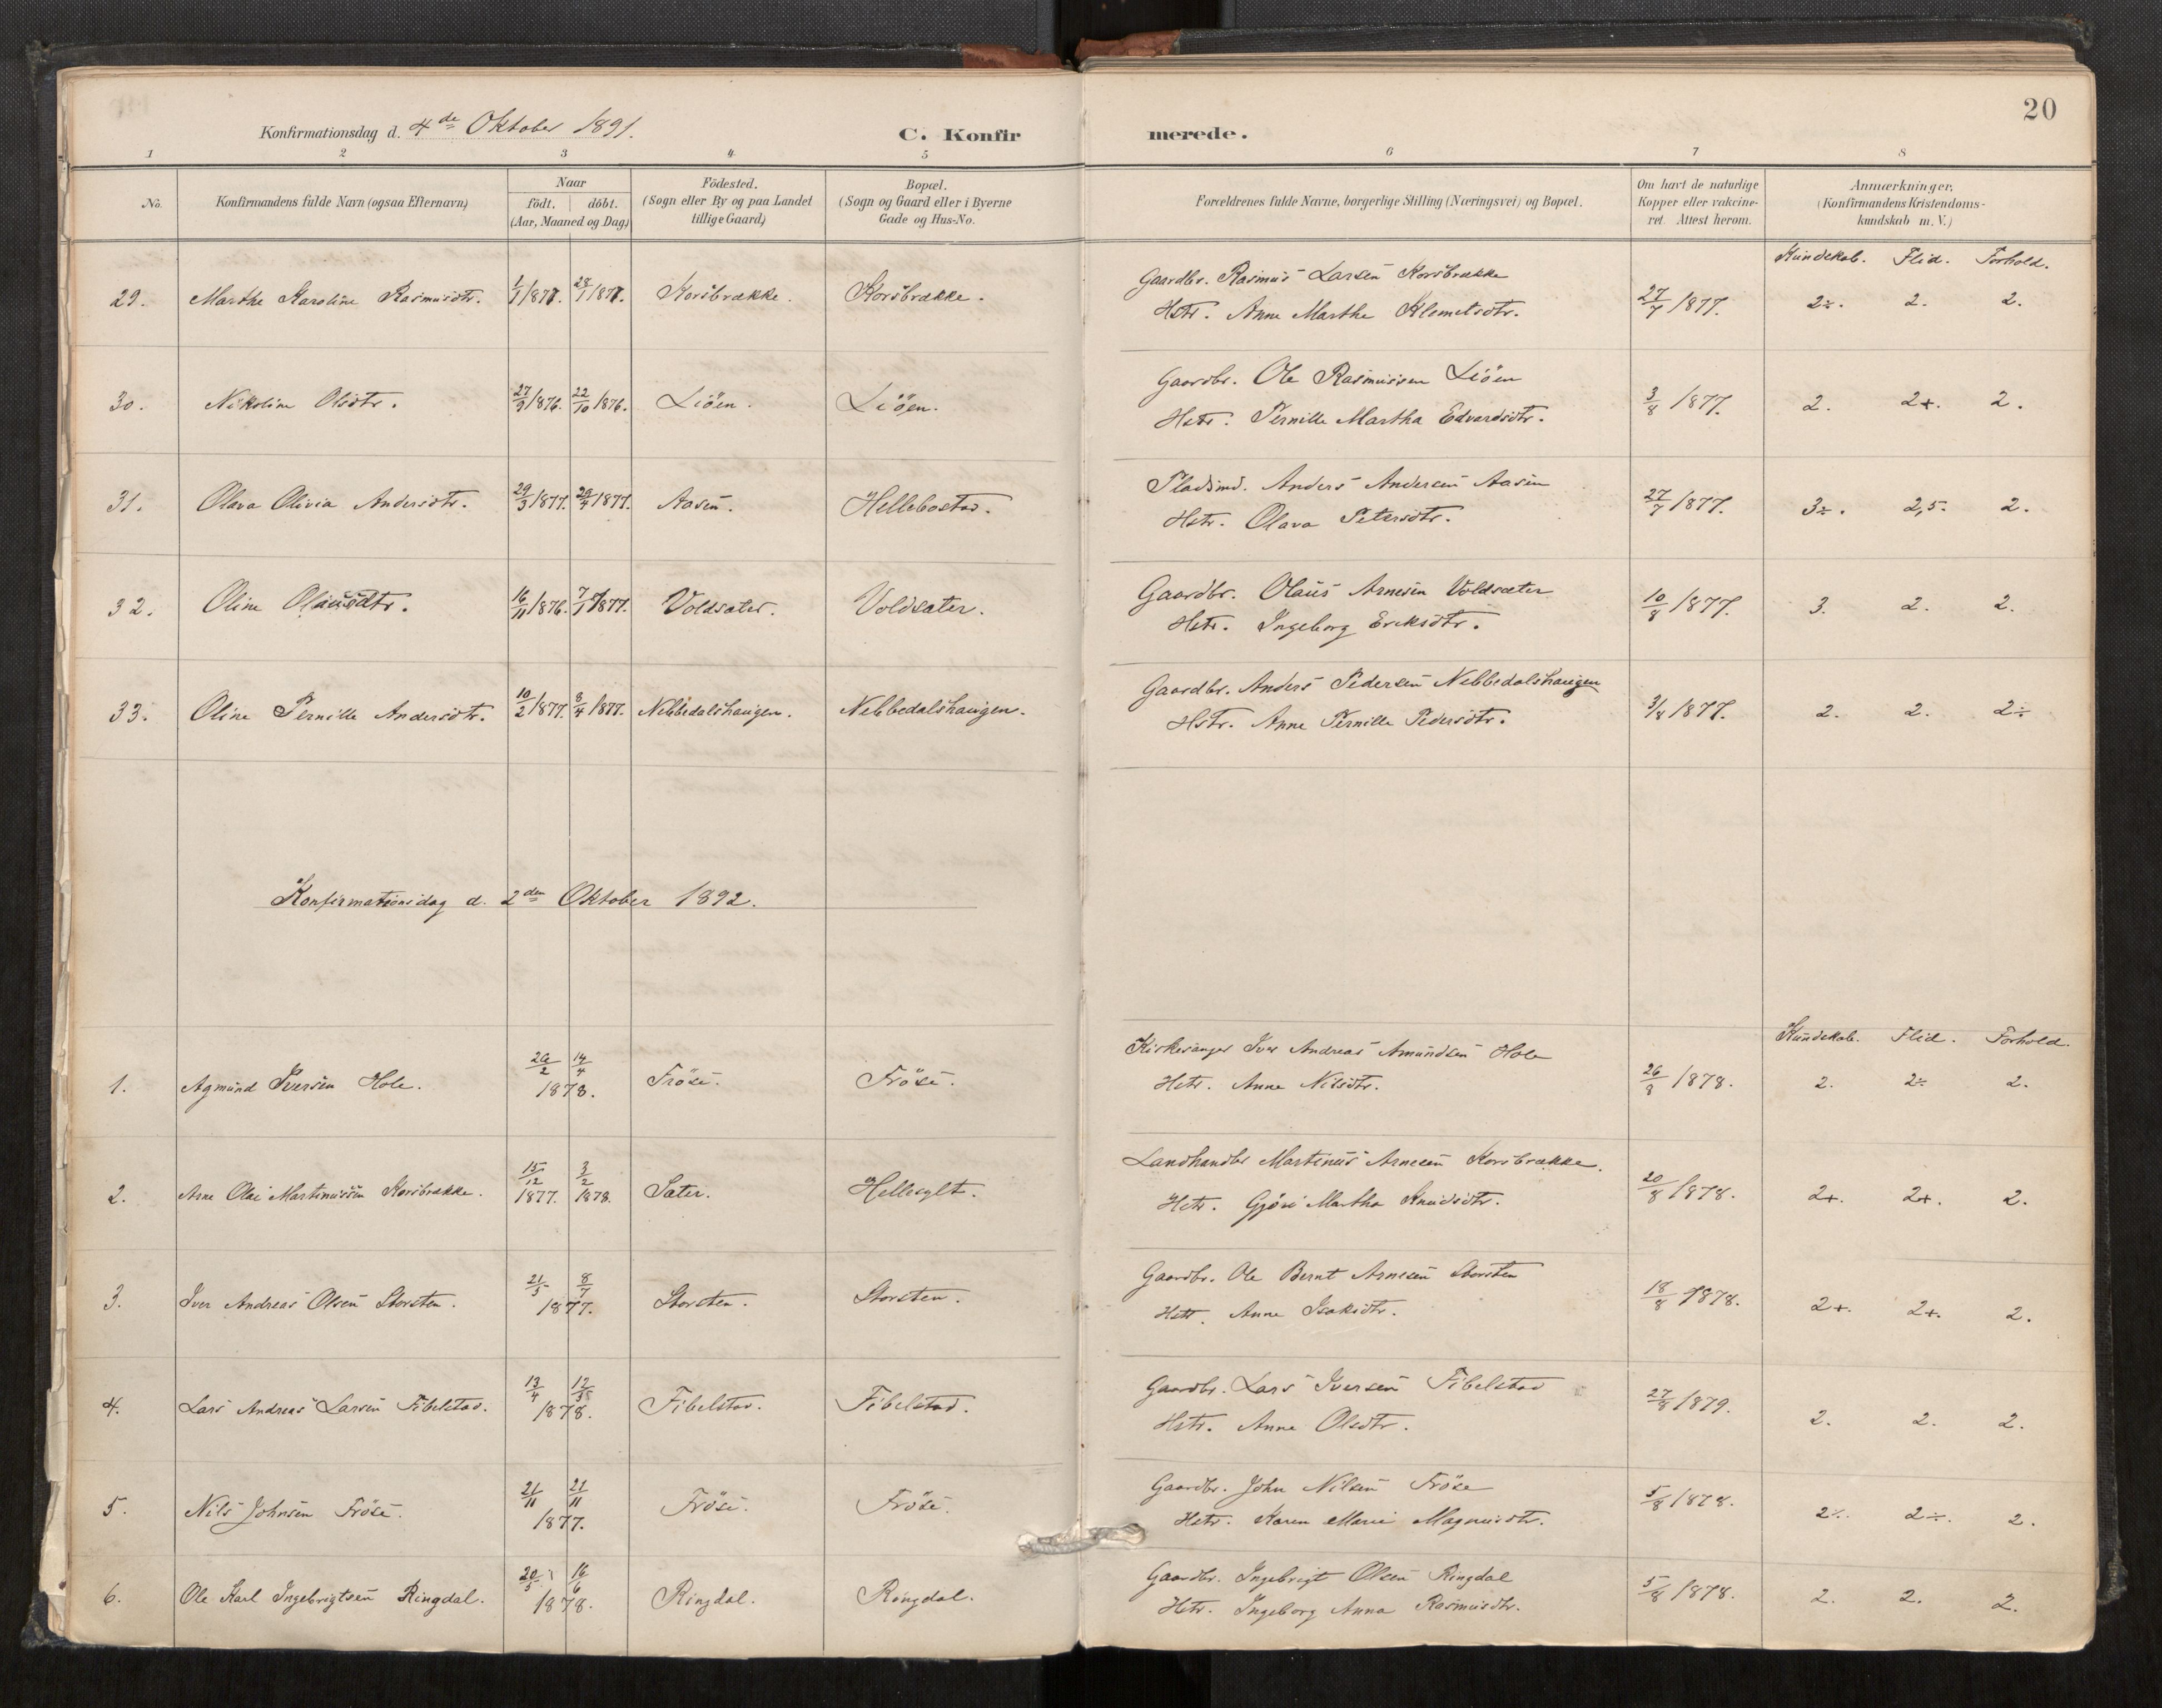 20
Konfirmationsdag d. 4de Oktober 1891. C. Konfirmerede.
1 2 3 4 5 6 7 8
No. Konfirmandens fulde Navn (ogsaa Efternavn) Naar födt. döbt. (Aar, Maaned og Dag) Födested. (Sogn eller By og paa Landet tillige Gaard) Bopæl. (Sogn og Gaard eller i Byerne Gade og Hus-No. Forældrenes fulde Navne, borgerlige Stilling (Næringsvei) og Bopæl. Om havt de naturlige Kopper eller vakcineret. Attest herom. Anmærkninger, (Konfirmandens Kristendomskundskab m. V.)
Kundskab. Flid. Forhold.
29. Marthe Karoline Rasmusdtr. 1/1 1877. 28/1 1877. Korsbrække. Korsbrække. Gaardbr. Rasmus Larsen Korsbrække
Hstr. Anne Marthe Klemetsdtr. 27/7 1877. 2÷. 2. 2.
30. Nikoline Olsdtr. 27/9 1876. 22/10 1876. Liöen. Liöen. Gaardbr. Ole Rasmussen Liöen
Hstr. Pernille Martha Edvardsdtr. 3/8 1877. 2. 2+. 2.
31. Olava Olivia Andersdtr. 29/3 1877. 29/4 1877. Aasen. Hellebostad. Pladsmd. Anders Andersen Aasen
Hstr. Olava Petersdtr. 27/7 1877. 3÷. 2,5. 2.
32. Oline Olausdtr. 16/11 1876. 7/1 1877. Voldsæter. Voldsæter. Gaardbr. Olaus Arnesen Voldsæter
Hstr. Ingeborg Eriksdtr. 10/8 1877. 3. 2. 2.
33. Oline Pernille Andersdtr. 10/2 1877. 8/4 1877. Nebbedalshaugen. Nebbedalshaugen. Gaardbr. Anders Pedersen Nebbedalshaugen
Hstr. Anne Pernille Pedersdtr. 3/8 1877. 2. 2. 2÷
Konfirmationsdag d. 2den Oktober 1892.
Kundskab. Flid. Forhold.
1. Agmund Iversen Hole. 14/4 1878. Fröse. Fröse. Kirkesanger Iver Andreas Amundsen Hole
Hstr. Anne Nilsdtr. 26/8 1878. 2. 2÷ 2.
2. Arne Olai Martinussen Korsbrække. 15/12 1877. 3/2 1878. Sæter. Hellesylt. Landhandler Martinus Arnesen Korsbrække.
Hstr. Gjøri Martha Knudsdtr. 20/8 1878. 2+. 2+. 2.
3. Iver Andreas Olsen Storsten. 21/5 8/7 1877. Storsten. Storsten. Gaardbr. Ole Bernt Arnesen Storsten
Hstr. Anne Isaksdtr. 18/8 1878. 2+. 2+. 2.
4. Lars Andreas Larsen Fibelstad. 13/4 12/5 1878. Fibelstad. Fibelstad. Gaardbr. Lars Iversen Fibelstad
Hstr. Anne Olsdtr. 27/8 1879. 2. 2. 2.
5. Nils Johnsen Fröse. 21/11 21/11 1877. Fröse. Fröse. Gaardbr. John Nilsen Fröse
Hstr. Karen Marie Magnusdtr. 5/8 1878. 2÷. 2÷. 2.
6. Ole Karl Ingebrigtsen Ringdal. 20/5 16/6 1878. Ringdal. Ringdal. Gaardbr. Ingebrigt Olsen Ringdal
Hstr. Ingeborg Anna Rasmusdtr. 5/8 1878. 2. 2. 2.